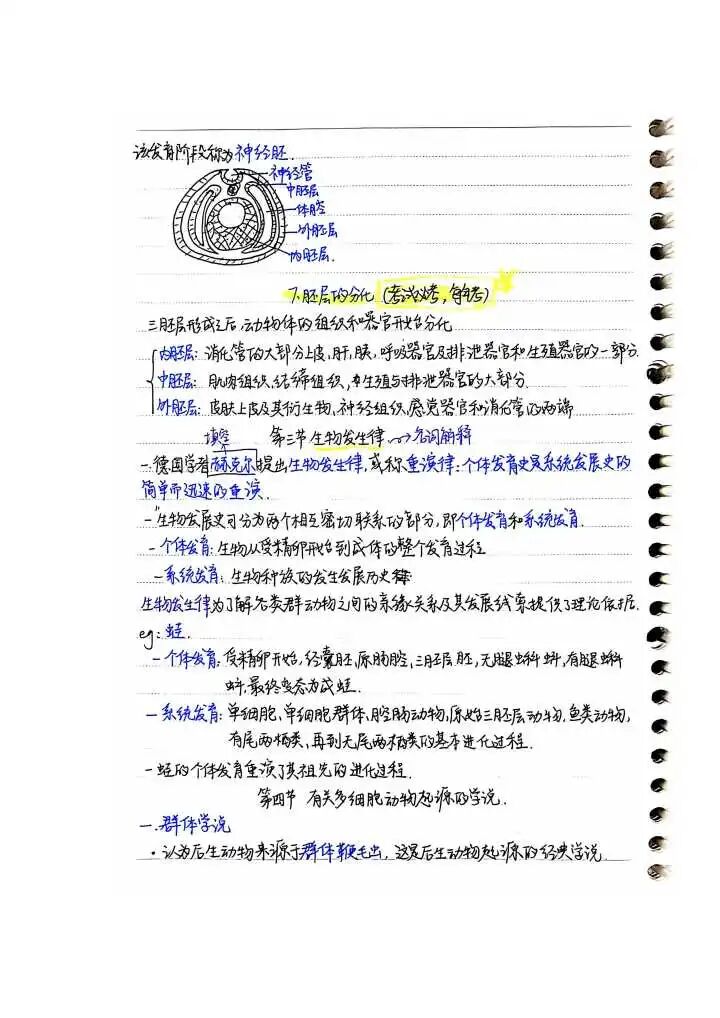 该发育阶段称为神经胚.
神经管
中胚层
体腔
外胚层
内胚层.
7.胚层的分化 (考试必考,每年考)
三胚层形成之后,动物体的组织和器官开始分化
内胚层: 消化管的大部分上皮,肝,胰,呼吸器官及排泄器官和生殖器官的一部分.
中胚层: 肌肉组织,结缔组织,生殖与排泄器官的大部分.
外胚层: 皮肤上皮及其衍生物,神经组织,感觉器官和消化管的两端
填空 第三节 生物发生律→名词解释
一.德国学者赫克尔提出生物发生律,或称重演律:个体发育史是系统发展史的
简单而迅速的重演.
-"生物发展史可分为两个相互密切联系的部分,即个体发育和系统发育.
-个体发育:生物从受精卵开始到成体的整个发育过程
-系统发育:生物种族的发生发展历史
生物发生律为了解各类群动物之间的亲缘关系及其发展线索提供了理论依据.
eg:蛙.
-个体发育:受精卵开始,经囊胚,原肠腔,三胚层胚,无腿蝌蚪,有腿蝌
蚪,最终变态为成蛙.
-系统发育:单细胞,单细胞群体,腔肠动物,原始三胚层动物,鱼类动物,
有尾两栖类,再到无尾两栖类的基本进化过程.
-蛙的个体发育重演了其祖先的进化过程.
第四节 有关多细胞动物起源的学说.
一.群体学说
·认为后生动物来源于群体鞭毛虫,这是后生动物起源的经典学说.